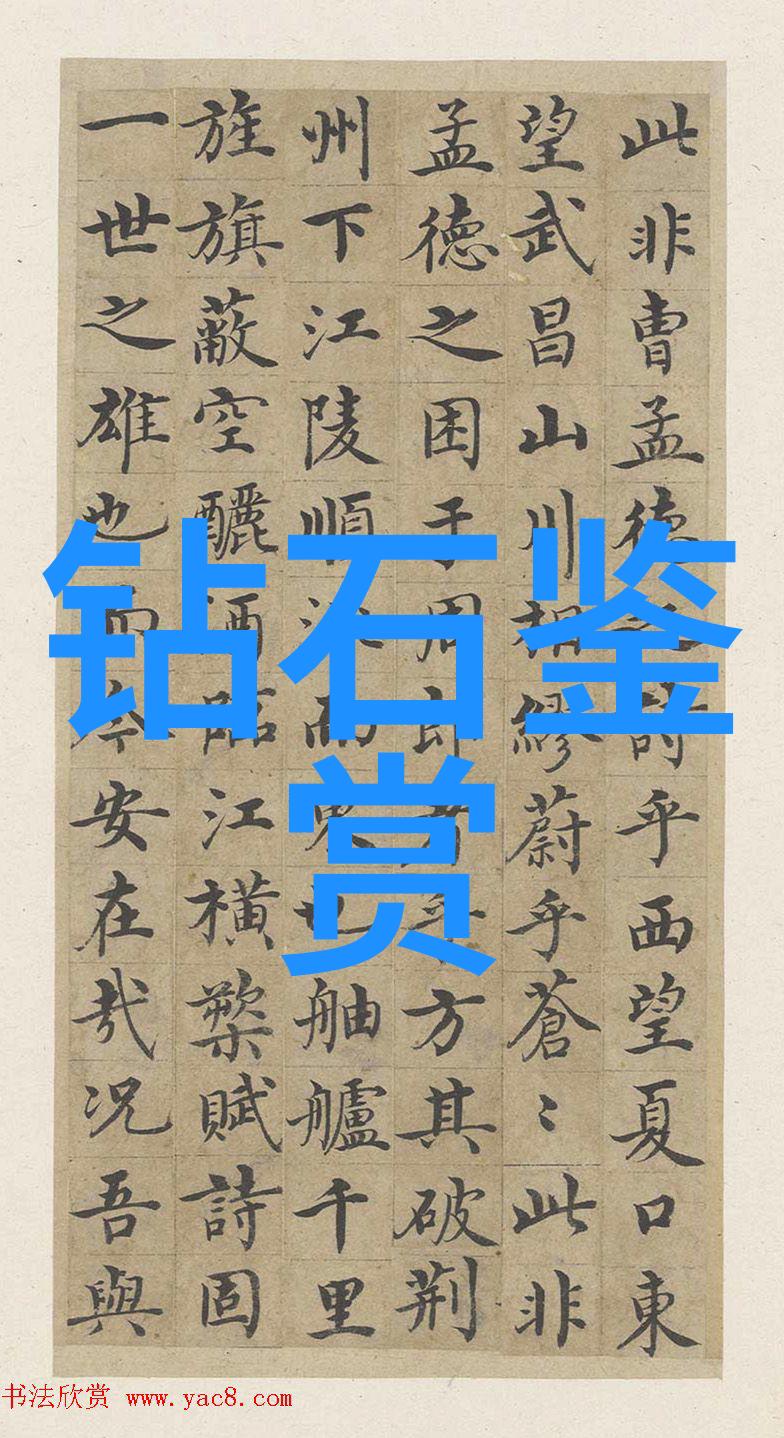 此非曹孟德之詩乎西望夏口東
望武昌山川相繆蔚乎蒼〻此非
孟德之困于周郎者乎方其破荆
州下江陵順流而東也舳艫千里
旌旗蔽空釃酒臨江橫槊賦詩固
一世之雄也而今安在哉况吾與
钻石鉴
赏
书法欣赏 www.yac8.com